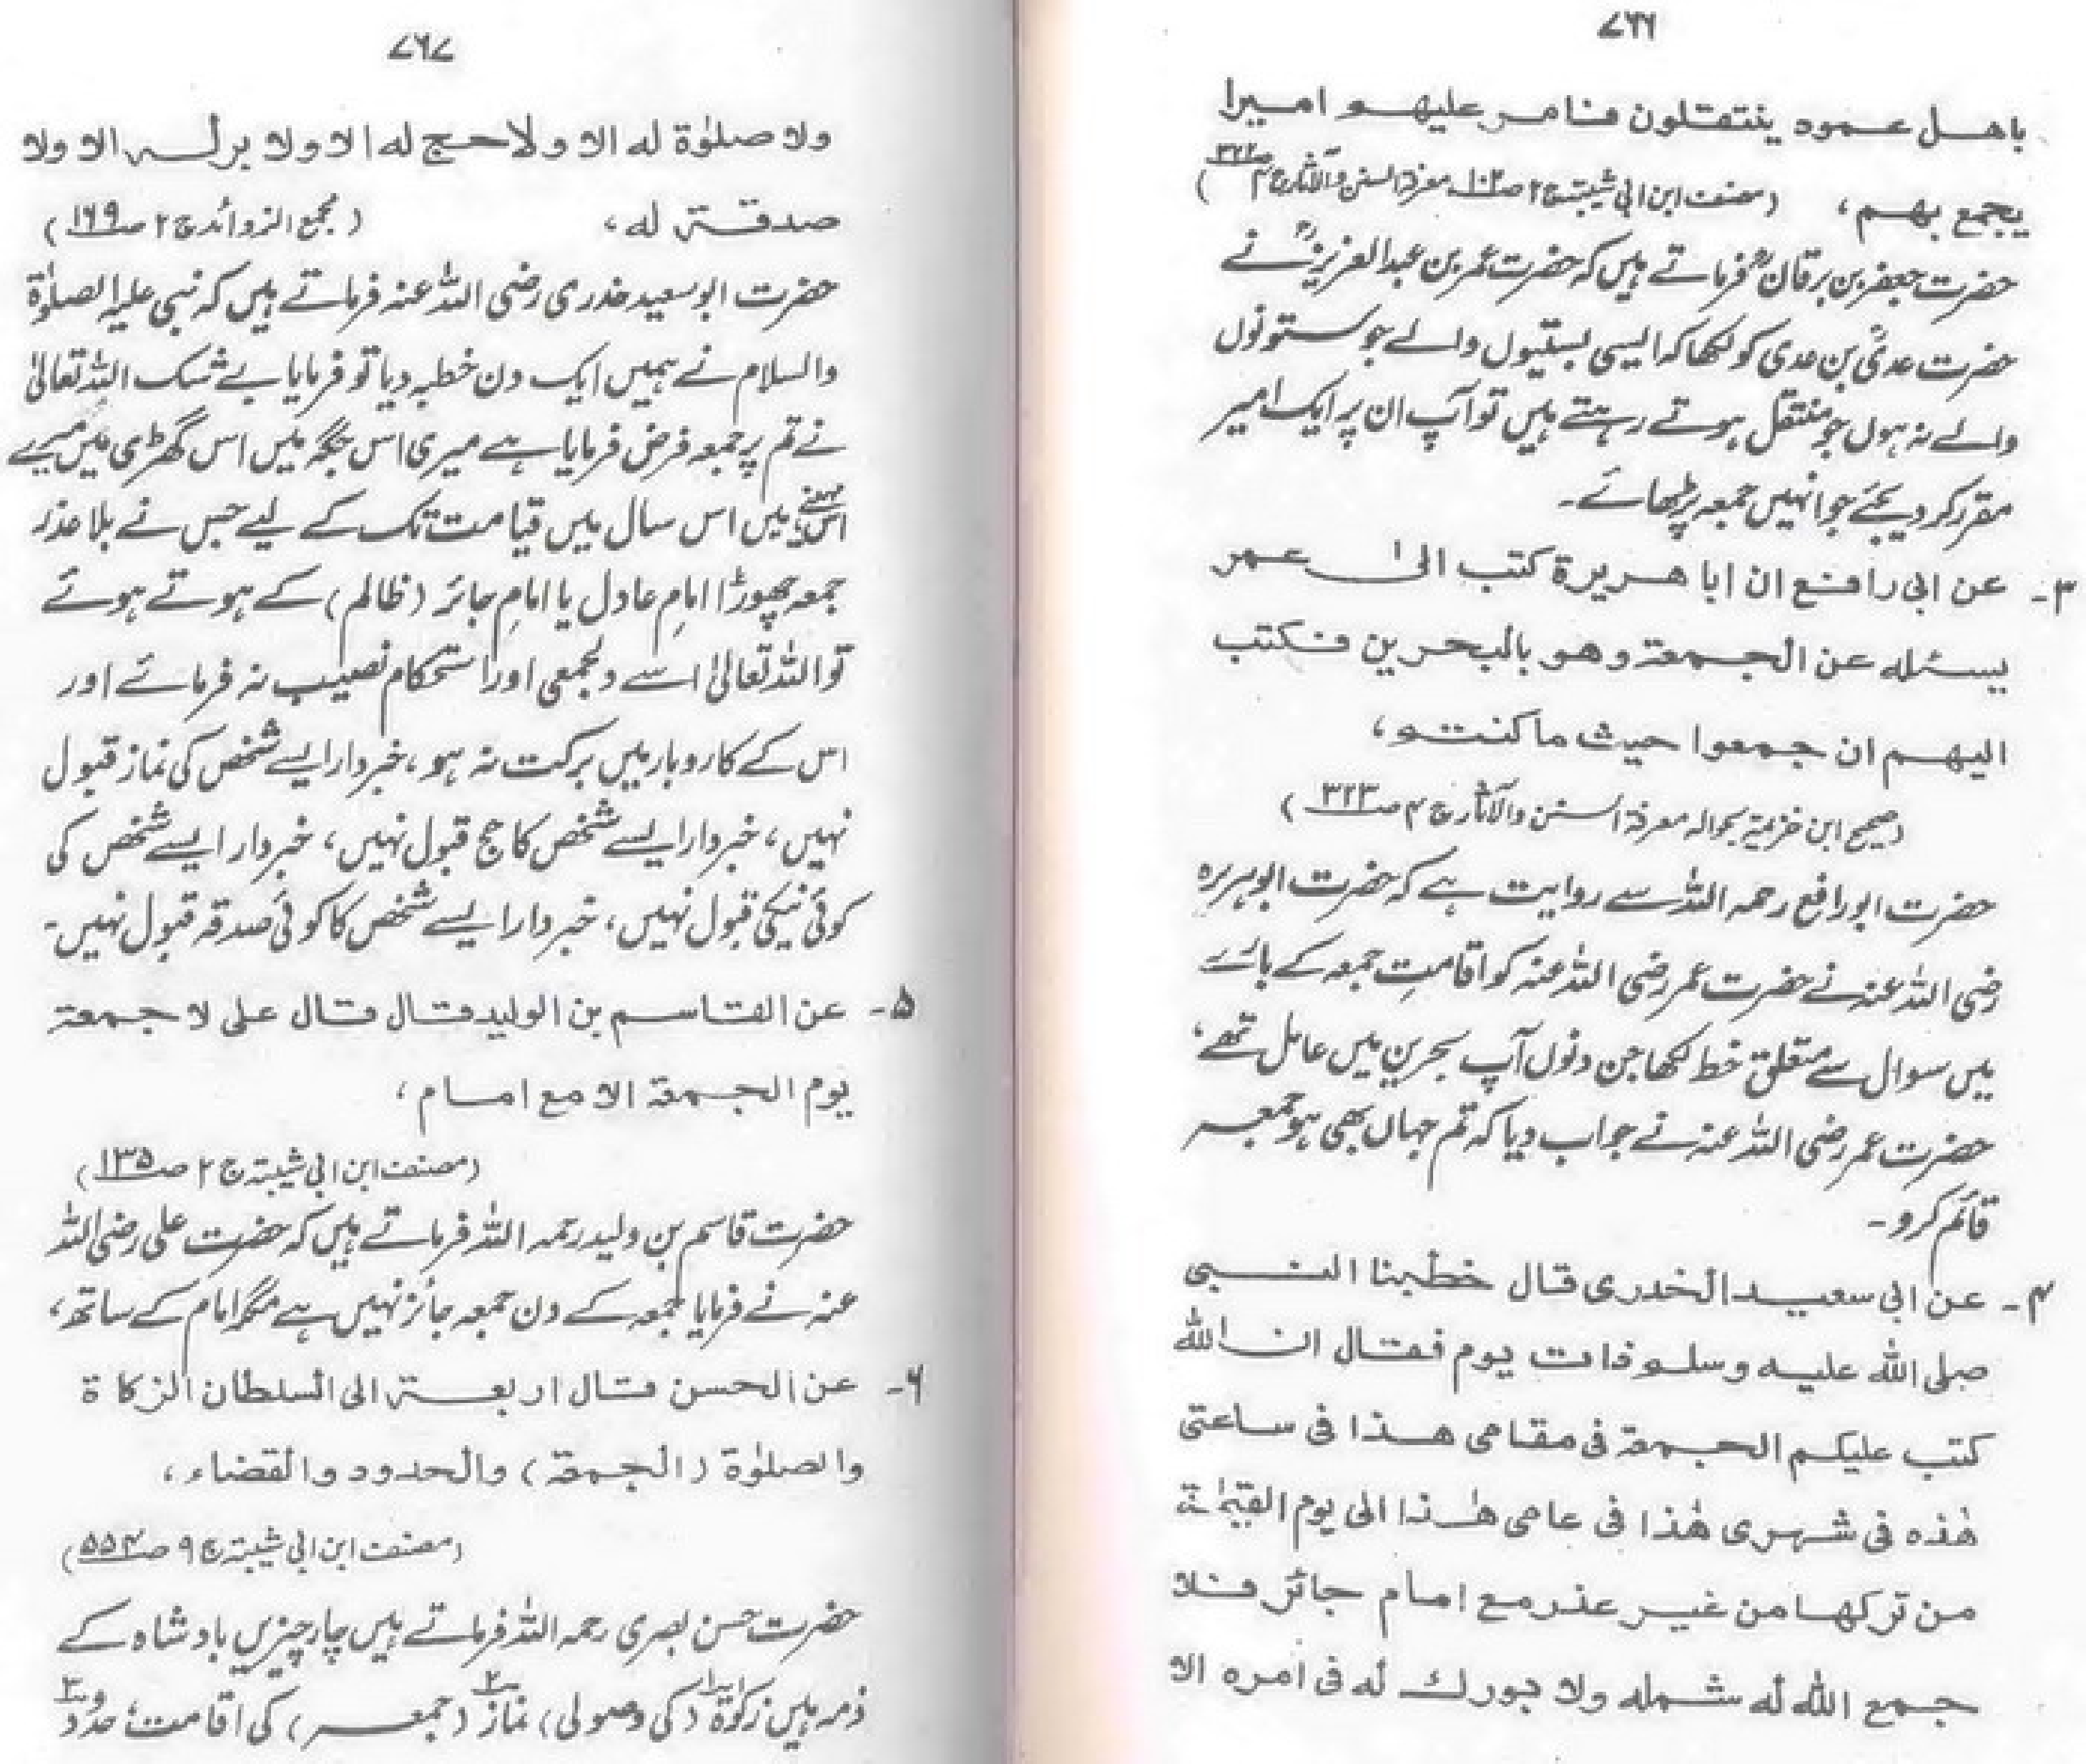 ۷۶۶
باهل عمود ينتقلون فنامر عليهم اميرا
يجمع بهم، (مصنف ابن ابی شیبۃ ج۲ ص۱۰۲، معرفۃ السنن والآثار ج۴ ص۳۲۲)
حضرت جعفر بن برقانؒ فرماتے ہیں کہ حضرت عمر بن عبدالعزیزؒ نے
حضرت عدیؒ بن عدی کو لکھا کہ ایسی بستیوں والے جو ستونوں
والے نہ ہوں جو منتقل ہوتے رہتے ہیں تو آپ ان پر ایک امیر
مقرر کر دیجئے جو انہیں جمعہ پڑھائے۔
۳۔ عن ابی رافع ان ابا هريرة كتب الیٰ عمر
يسئله عن الجمعة وهو بالبحرين فكتب
اليهم ان جمعوا حيث ما كنتم،
(صحیح ابن خزیمۃ بحوالہ معرفۃ السنن والآثار ج۴ ص۳۲۳)
حضرت ابورافع رحمہ اللہ سے روایت ہے کہ حضرت ابوہریرہ
رضی اللہ عنہ نے حضرت عمر رضی اللہ عنہ کو اقامتِ جمعہ کے بارے
میں سوال سے متعلق خط لکھا جن دنوں آپ بحرین میں عامل تھے،
حضرت عمر رضی اللہ عنہ نے جواب دیا کہ تم جہاں بھی ہو جمعہ
قائم کرو۔
۴۔ عن ابی سعيد الخدری قال خطبنا النبی
صلی الله عليه وسلم ذات يوم فقال ان الله
كتب عليكم الجمعة فی مقامی هذا فی ساعتی
هٰذه فی شهری هٰذا فی عامی هٰذا الی يوم القيٰمة
من تركها من غير عذر مع امام جائر فلا
جمع الله له شمله ولا بورك له فی امره الا
۷۶۷
ولا صلوٰة له الا ولا حج له الا ولا بر له الا ولا
صدقة له، (مجمع الزوائد ج۲ ص۱۶۹)
حضرت ابوسعید خدری رضی اللہ عنہ فرماتے ہیں کہ نبی علیہ الصلوٰۃ
والسلام نے ہمیں ایک دن خطبہ دیا تو فرمایا بے شک اللہ تعالیٰ
نے تم پر جمعہ فرض فرمایا ہے میری اس جگہ میں اس گھڑی میں میرے
اس مہینے میں اس سال میں قیامت تک کے لیے جس نے بلا عذر
جمعہ چھوڑا امامِ عادل یا امامِ جائر (ظالم) کے ہوتے ہوئے
تو اللہ تعالیٰ اسے دلجمعی اور استحکام نصیب نہ فرمائے اور
اس کے کاروبار میں برکت نہ ہو، خبردار ایسے شخص کی نماز قبول
نہیں، خبردار ایسے شخص کا حج قبول نہیں، خبردار ایسے شخص کی
کوئی نیکی قبول نہیں، خبردار ایسے شخص کا کوئی صدقہ قبول نہیں۔
۵۔ عن القاسم بن الوليد قال قال علی لا جمعة
يوم الجمعة الا مع امام،
(مصنف ابن ابی شیبۃ ج۲ ص۱۳۵)
حضرت قاسم بن ولید رحمہ اللہ فرماتے ہیں کہ حضرت علی رضی اللہ
عنہ نے فرمایا جمعہ کے دن جمعہ جائز نہیں ہے مگر امام کے ساتھ،
۶۔ عن الحسن قال اربعة الی السلطان الزكاة
والصلوٰة (الجمعة) والحدود والقضاء،
(مصنف ابن ابی شیبۃ ج۹ ص۵۵۴)
حضرت حسن بصری رحمہ اللہ فرماتے ہیں چار چیزیں بادشاہ کے
ذمہ ہیں ۱ زکوٰۃ (کی وصولی) ۲ نماز (جمعہ) کی اقامت، ۳ حدود